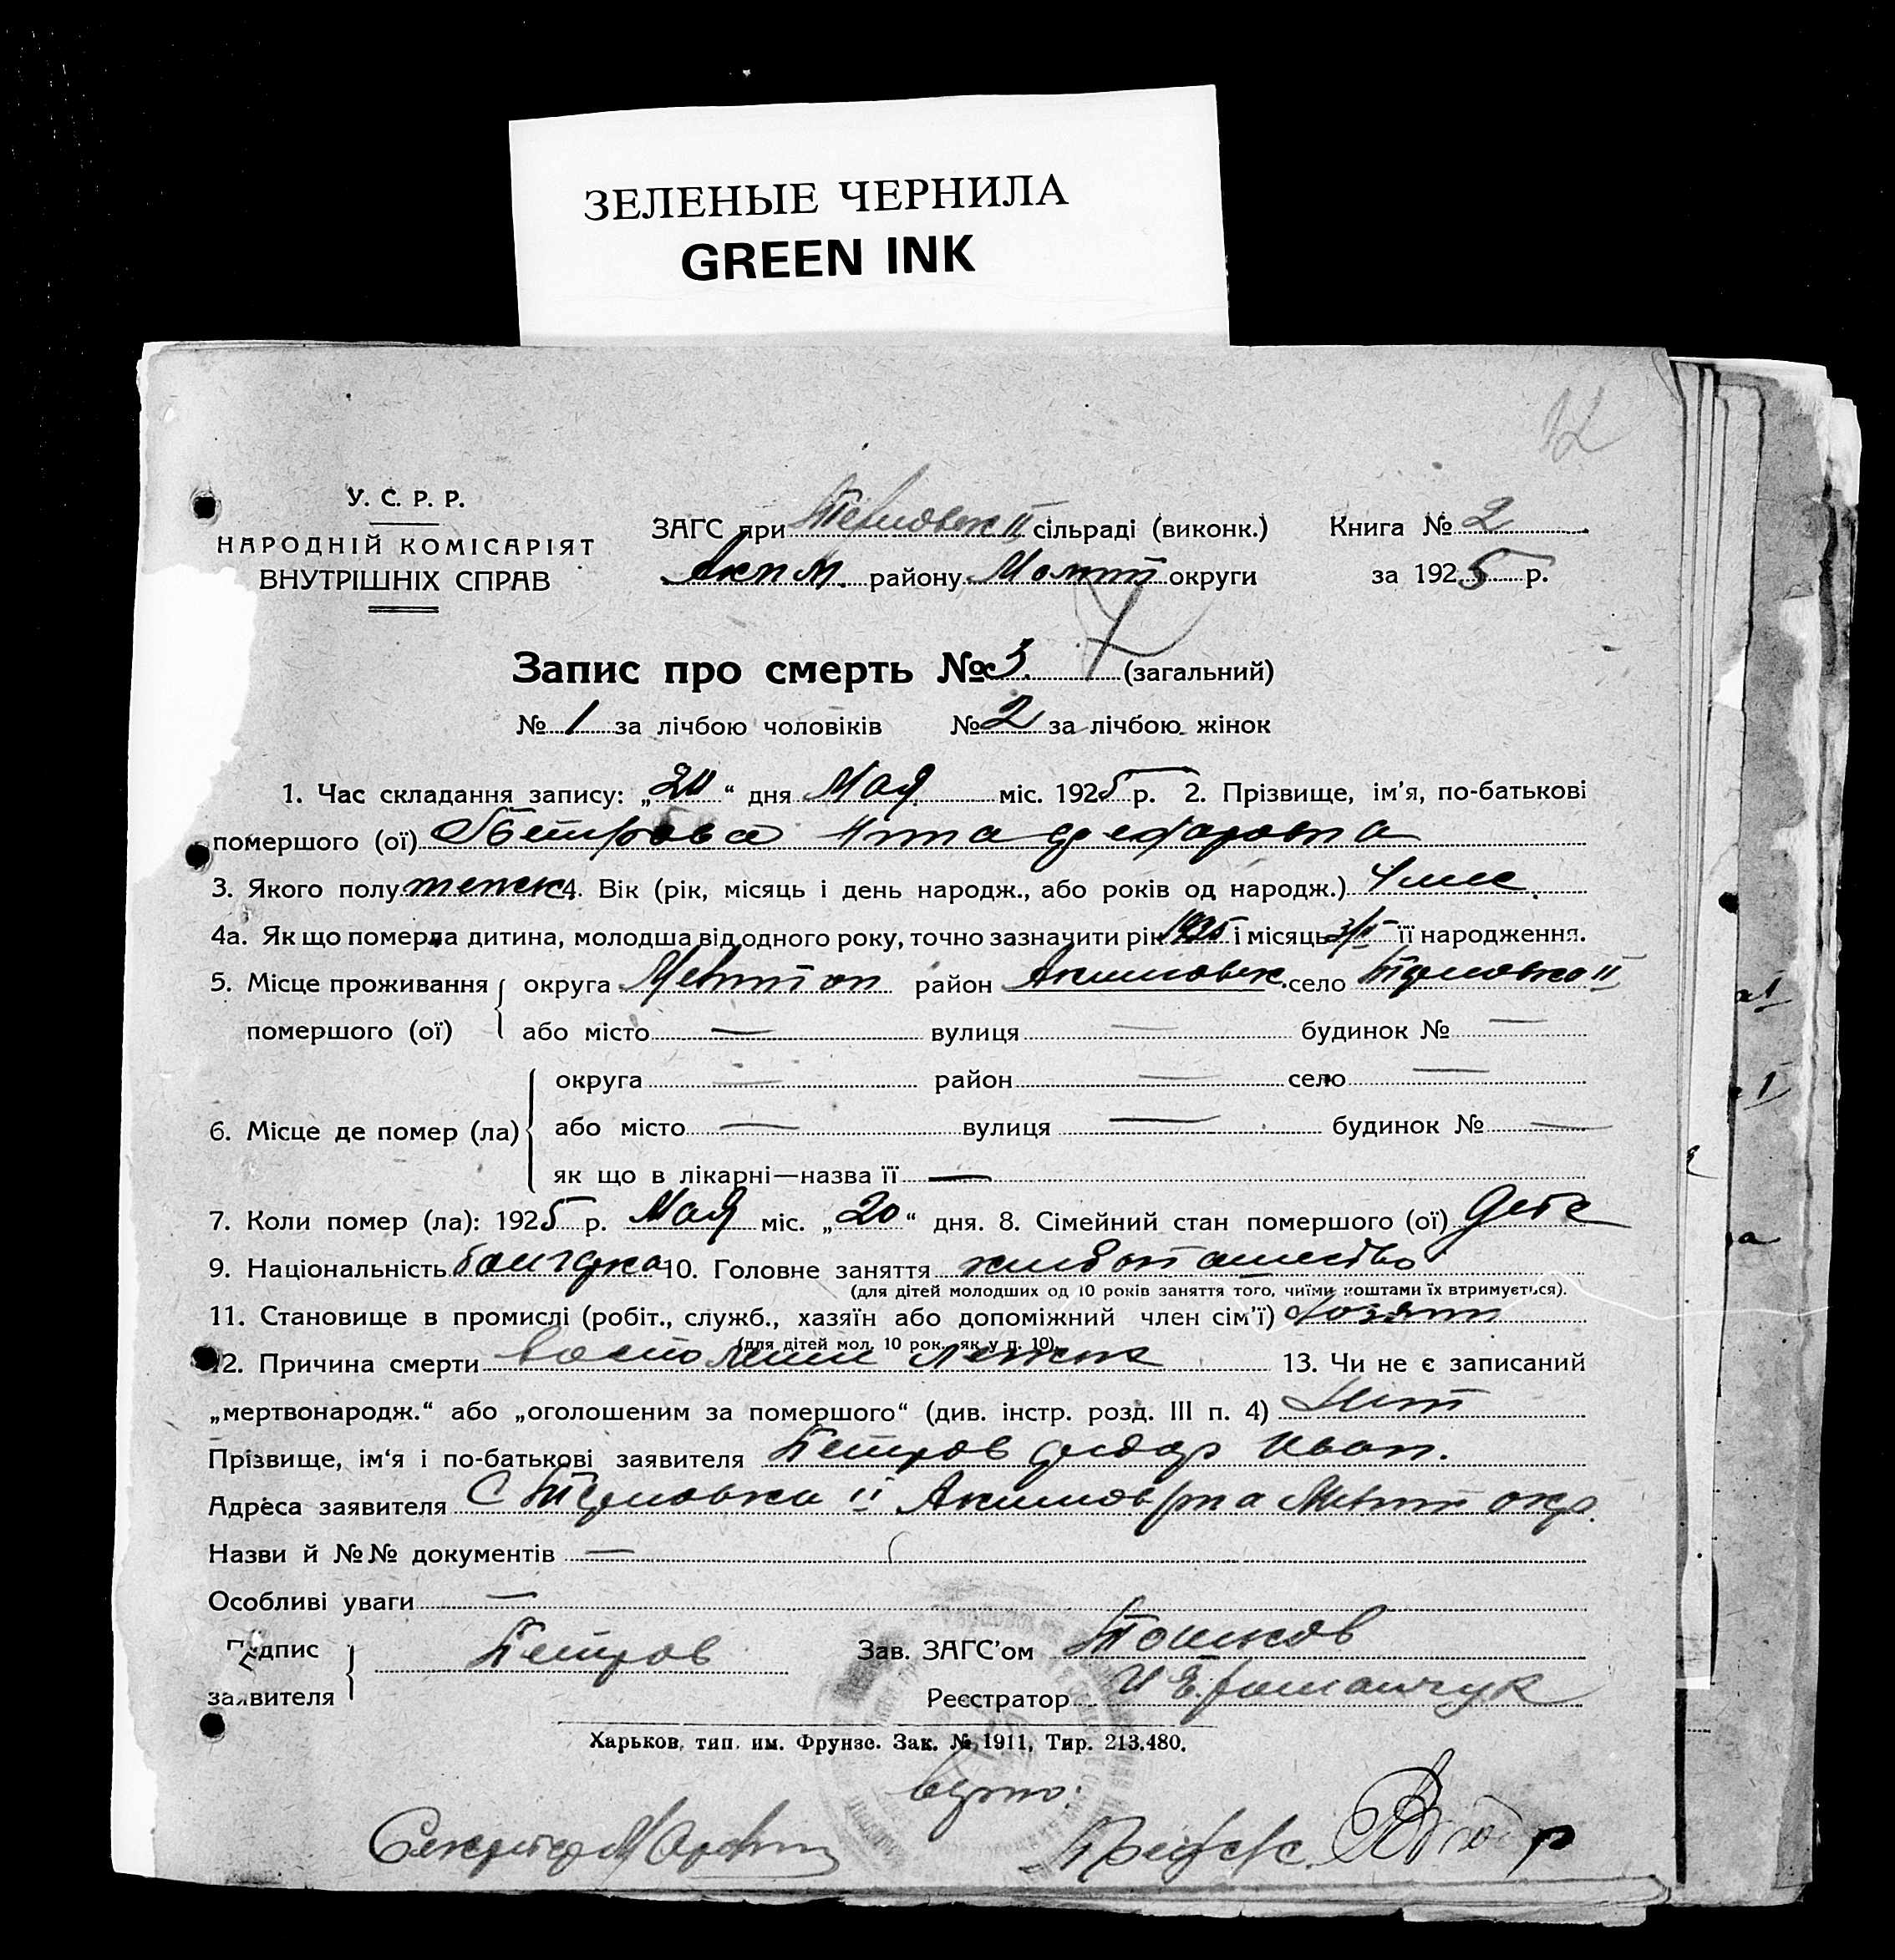 ЗЕЛЕНЫЕ ЧЕРНИЛА
GREEN INK
12
У. С. Р. Р.
НАРОДНІЙ КОМІСАРІЯТ
ВНУТРІШНІХ СПРАВ
ЗАГС при II сільраді (виконк.)
Аким. району Мелит округи
Книга № 2
за 1925 р.
Запис про смерть № 3. (загальний)
№ 1 за лічбою чоловіків № 2 за лічбою жінок
1. Час складання запису: „ “ дня Мая міс. 1925 р. 2. Прізвище, ім’я, по-батькові
помершого (ої) Петрова
3. Якого полу женск 4. Вік (рік, місяць і день народж., або років од народж.)
4а. Як що померла дитина, молодша від одного року, точно зазначити рік 1925 і місяць її народження.
5. Місце проживання округа Мелитоп район Акимовск. село II
помершого (ої) або місто — вулиця — будинок № —
округа — район — село —
6. Місце де помер (ла) або місто — вулиця — будинок № —
як що в лікарні—назва її —
7. Коли помер (ла): 1925 р. Мая міс. „20“ дня. 8. Сімейний стан помершого (ої)
9. Національність болгарка 10. Головне заняття хлебопашество
(для дітей молодших од 10 років заняття того, чиїми коштами їх втримується).
11. Становище в промислі (робіт., служб., хазяїн або допоміжний член сім’ї) хозяин
(для дітей мол. 10 рок., як у п. 10).
12. Причина смерти 13. Чи не є записаний
„мертвонародж.“ або „оголошеним за помершого“ (див. інстр. розд. III п. 4) Нет
Прізвище, ім‘я і по-батькові заявителя Петров Иван.
Адреса заявителя С II Акимов р на Мелит окр.
Назви й №№ документів —
Особливі уваги —
Підпис
заявителя
Петров
Зав. ЗАГС’ом
Реєстратор
Харьков, тип. им. Фрунзе. Зак. № 1911, Тир. 213.480.
верно:
Секретарь